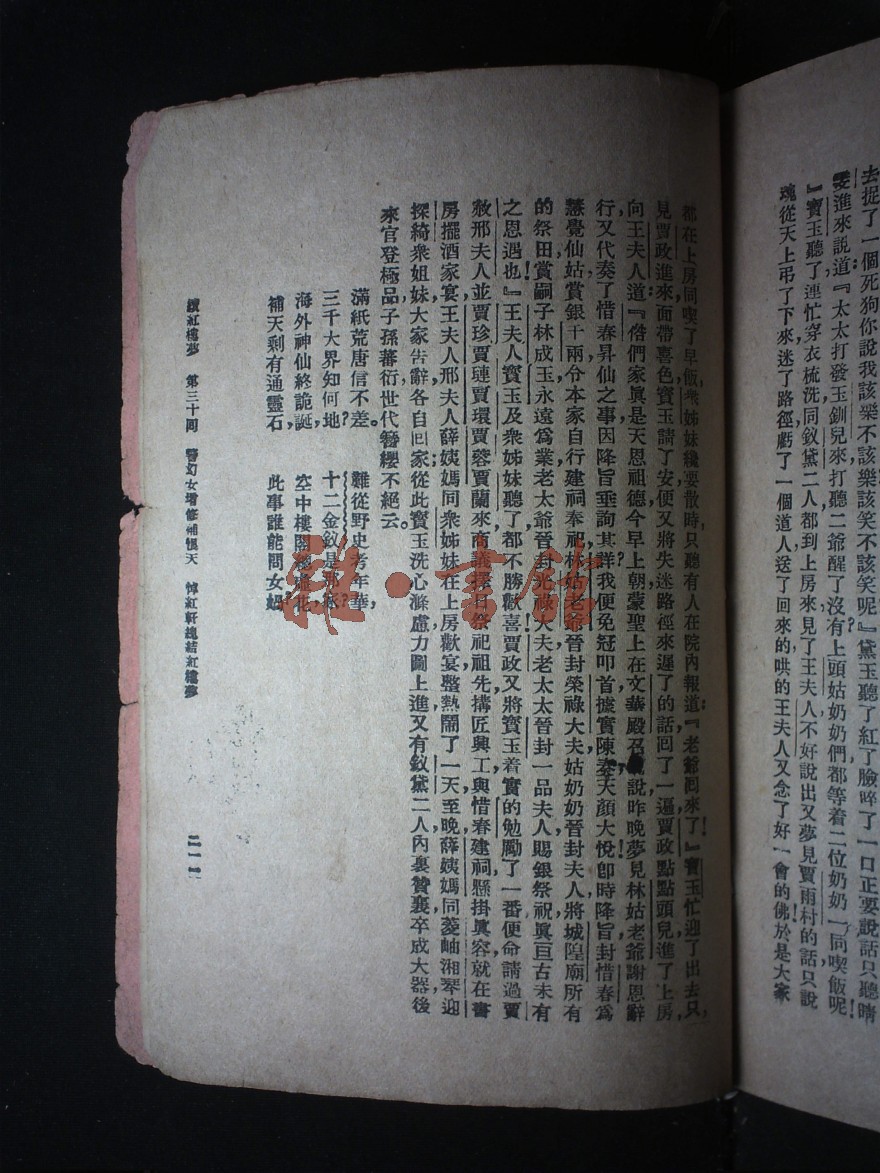 去捉了一個死狗你說我該樂不該樂該笑不該笑呢』黛玉聽了紅了臉啐了一口正要說話只聽晴
雯進來說道『太太打發玉釧兒來打聽二爺醒了沒有上頭姑奶奶們都等着二位奶奶一同喫飯呢！
』寶玉聽了連忙穿衣梳洗同釵黛二人都到上房來見了王夫人不好說出又夢見賈雨村的話只說
魂從天上弔了下來迷了路徑虧了一個道人送了回來的哄的王夫人又念了好一會的佛於是大家
都在上房同喫了早飯衆姊妹纔要散時只聽有人在院內報道：『老爺囘來了！』寶玉忙迎了出去只
見賈政進來面帶喜色寶玉請了安便又將失迷路徑來遲了的話囘了一遍賈政點點頭兒進了上房
向王夫人道：『偺們家眞是天恩祖德今早上朝蒙聖上在文華殿召 說昨晚夢見林姑老爺謝恩辭
行又代奏了惜春昇仙之事因降旨垂詢其詳我便免冠叩首據實陳奏天顏大悅卽時降旨封惜春爲
慧覺仙姑賞銀千兩令本家自行建祠奉祀林姑老爺晉封榮祿大夫姑奶奶晉封夫人將城隍廟所有
的祭田賞嗣子林成玉永遠爲業老太爺晉封光祿大夫老太太晉封一品夫人賜銀祭祝眞亘古未有
之恩遇也！』王夫人寶玉及衆姊妹聽了都不勝歡喜賈政又將寶玉着實的勉勵了一番便命請過賈
赦邢夫人並賈珍賈璉賈環賈蓉賈蘭來商議擇日祭祀祖先擣匠興工與惜春建祠懸掛眞容就在書
房擺酒家宴王夫人邢夫人薛姨媽同衆姊妹在上房歡宴整熱鬧了一天至晚薛姨媽同菱岫湘琴迎
探綺衆姐妹大家吿辭各自囘家從此寶玉洗心滌慮力圖上進又有釵黛二人內裏贊襄卒成大器後
來官登極品子孫蕃衍世代簪纓不絕云。
滿紙荒唐信不差。 難從野史考年華，
三千大界知何地？ 十二金釵是那家？
海外神仙終詭誕， 空中樓閣總虛花，
補天剩有通靈石， 此事誰能問女媧
續紅樓夢 第三十回 警幻女增修補恨天 悼紅軒總結紅樓夢 二一一
雅·書館